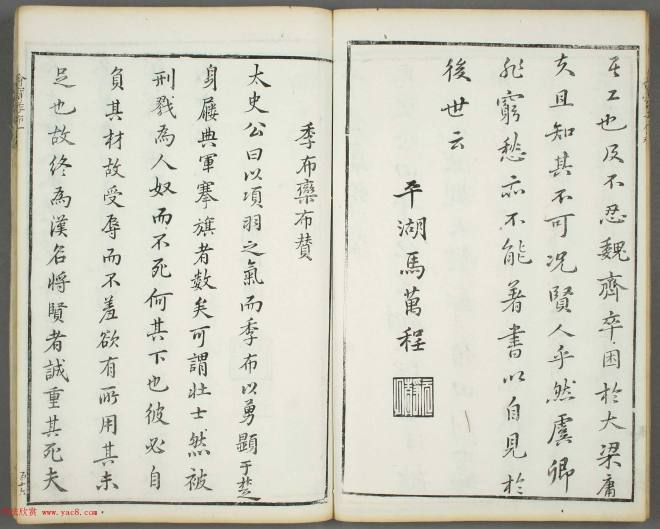 其工也及不忍魏齊卒困於大梁庸
夫且知其不可况賢人乎然虞卿
非窮愁亦不能著書以自見於
後世云
平湖馬萬程
季布欒布贊
太史公曰以項羽之氣而季布以勇顯于楚
身屨典軍搴旗者數矣可謂壮士然被
刑戮為人奴而不死何其下也彼必自
負其材故受辱而不羞欲有所用其未
足也故終為漢名將賢者誠重其死夫
书法欣赏 www.yac8.com